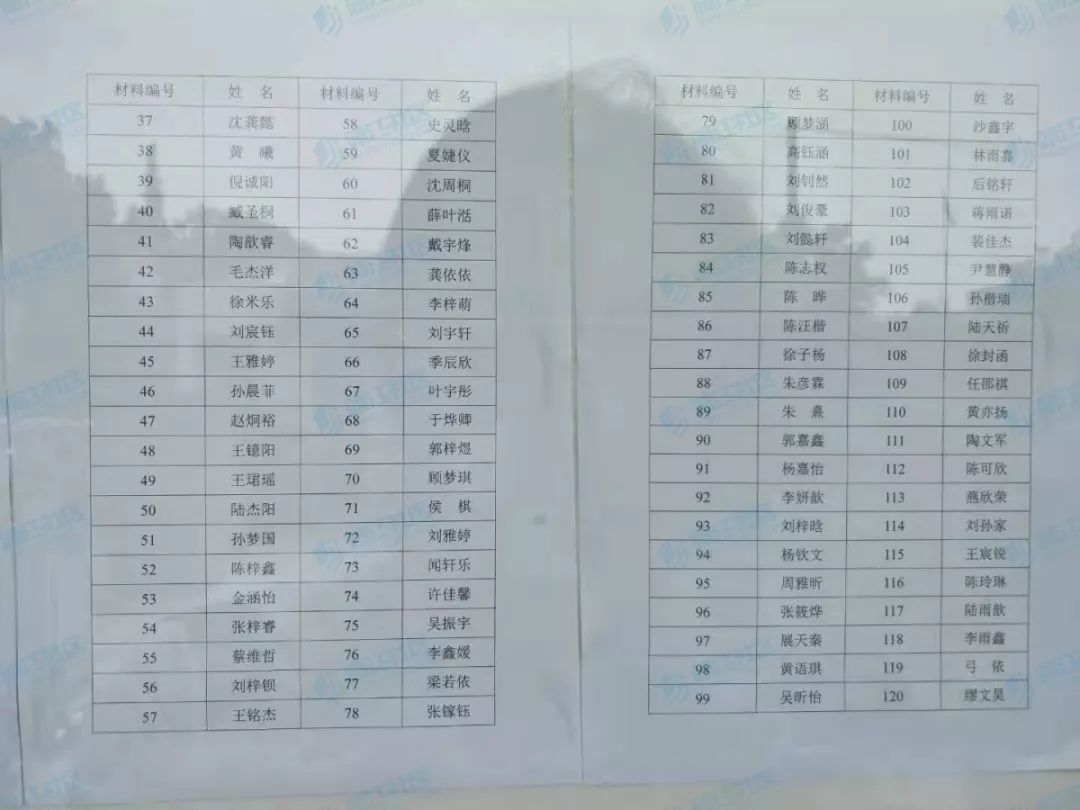 材料编号 姓 名 材料编号 姓 名
37 沈龚懿 58 史灵晗
38 黄 曦 59 夏婕仪
39 倪诚阳 60 沈周桐
40 臧圣桐 61 薛叶湉
41 陶歆睿 62 戴宇烽
42 毛杰洋 63 龚依依
43 徐米乐 64 李梓萌
44 刘宸钰 65 刘宇轩
45 王雅婷 66 季辰欣
46 孙晨菲 67 叶宇彤
47 赵炯裕 68 于烨卿
48 王镱阳 69 郭梓煜
49 王珺瑶 70 顾梦琪
50 陆杰阳 71 侯 棋
51 孙梦国 72 刘雅婷
52 陈梓鑫 73 闻轩乐
53 金涵怡 74 许佳馨
54 张梓睿 75 吴振宇
55 蔡维哲 76 李鑫嫒
56 刘梓钡 77 梁若依
57 王铭杰 78 张镓钰
材料编号 姓 名 材料编号 姓 名
79 顾梦涵 100 沙鑫宇
80 高钰涵 101 林雨嘉
81 刘钊然 102 后铭轩
82 刘俊豪 103 蒋雨诺
83 刘懿轩 104 裴佳杰
84 陈志权 105 尹慧静
85 陈 晔 106 孙楷瑞
86 陈汪楷 107 陆天祈
87 徐子杨 108 徐封函
88 朱彦霖 109 任邵棋
89 朱 熹 110 黄亦扬
90 郭嘉鑫 111 陶文军
91 杨嘉怡 112 陈可欣
92 李妍歆 113 燕欣荣
93 刘梓晗 114 刘孙家
94 杨钦文 115 王宸锐
95 周雅昕 116 陈玲琳
96 张筱烨 117 陆雨歆
97 展天秦 118 李雨鑫
98 黄语琪 119 弓 依
99 吴昕怡 120 缪文昊